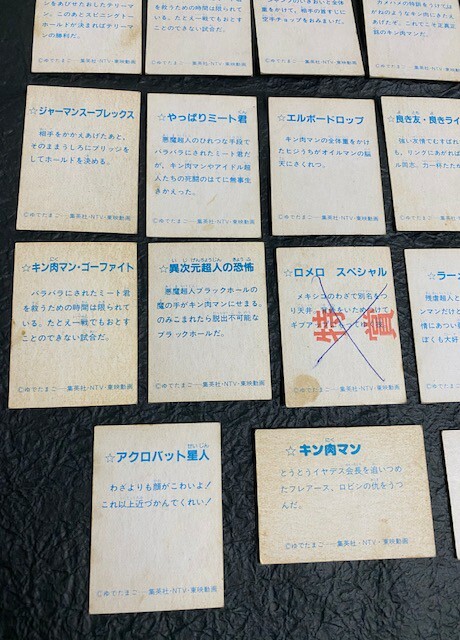 をあびせたおしたテリーマ
ン。このあとスピニングトー
ーホールドが決まればテリーマ
ンの勝利だ。
©ゆでたまご——集英社・NTV・東映動画
を救うための時間は限られて
いる。たとえ一戦でもおとす
ことのできない試合だ。
©ゆでたまご——集英社・NTV・東映動画
量をかけて、相手の首すじに
空手チョップをおみまいだ。
©ゆでたまご——集英社・NTV・東映動画
カメハメの特訓をうけては
がねのような
あげたぞ。
部のキン肉マンだ。
©ゆでたまご——集英社・NTV・東映動画
☆ジャーマンスープレックス
相手をかかえあげたあと、
そのままうしろにブリッジを
してホールドを決める。
©ゆでたまご——集英社・NTV・東映動画
☆やっぱりミート君
くん
悪魔超人のひれつな手段で
バラバラにされたミート君だ
が、キン肉マンやアイドル超
人たちの死闘のはてに無事生
きかえった。
©ゆでたまご——集英社・NTV・東映動画
☆エルボードロップ
キン肉マンの全体重をかけ
たヒジうちがオイルマンの脳
天にさくれつ。
©ゆでたまご——集英社・NTV・東映動画
☆良き友・良きライ
強い友情でむすばれ
も、リングにあがれば
ル同志。力一杯たたか
©ゆでたまご——集英社・NTV・
☆キン肉マン・ゴーファイト
にく
バラバラにされたミート君
を救うための時間は限られて
いる。たとえ一戦でもおとす
ことのできない試合だ。
©ゆでたまご——集英社・NTV・東映動画
☆異次元超人の恐怖
いじげんちょうじん きょうふ
悪魔超人ブラックホールの
魔の手がキン肉マンにせまる。
のみこまれたら脱出不可能な
ブラックホールだ。
©ゆでたまご——集英社・NTV・東映動画
☆ロメロ スペシャル
メキシコのわざで別名をつ
り天井
ギブア
特賞
©ゆでたまご——集英社・NTV・東映動画
☆ラーメ
残虐超人と
ンマンだけど
情にあつい
ぼくも大好
©ゆでたまご——集英
☆アクロバット星人
せいじん
わざよりも顔がこわいよ!
これ以上近づかんてくれい!
©ゆでたまご——集英社・NTV・東映動画
☆キン肉マン
にく
とうとうイヤデス会長を追いつめ
たフレアース、ロビンの仇をうつ
んだ。
©ゆでたまご——集英社・NTV・東映動画